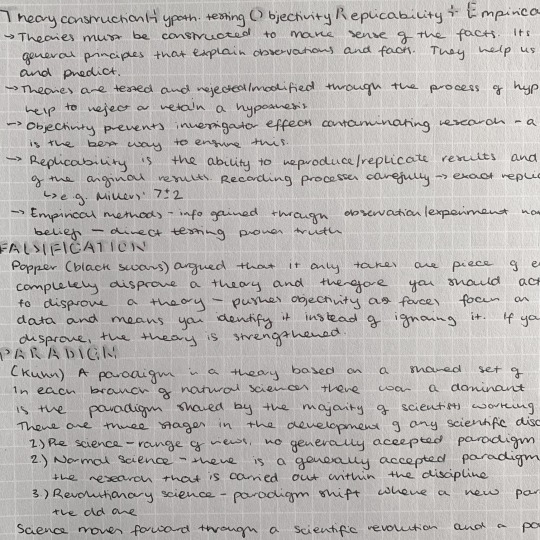 Theory construction Hypoth. testing Objectivity Replicability + Empirica
→ Theories must be constructed to make sense of the facts. Its
general principles that explain observations and facts. They help us
and predict.
→ Theories are tested and rejected/modified through the process of hyp
help to reject or retain a hypothesis
→ Objectivity prevents investigator effects contaminating research - a
is the best way to ensure this.
→ Replicability is the ability to reproduce/replicate results and
of the original results. Recording processes carefully → exact replic
↳ e.g. Millers' 7±2
→ Empirical methods - info gained through observation/experiment no
beliefs - direct testing proves truth
FALSIFICATION
Popper (black swans) argued that it only takes one piece of e
completely disprove a theory and therefore you should act
to disprove a theory - pushes objectivity as forces focus on
data and means you identify it instead of ignoring it. If yo
disprove, the theory is strengthened.
PARADIGM
(Kuhn) A paradigm is a theory based on a shared set of
In each branch of natural sciences there was a dominant
is the paradigm shared by the majority of scientists working
There are three stages in the development of any scientific disc
1) Pre science - range of views, no generally accepted paradigm
2) Normal science - there is a generally accepted paradigm
the research that is carried out within the discipline
3) Revolutionary science - paradigm shift where a new par
the old one
Science moves forward through a scientific revolution and a pa